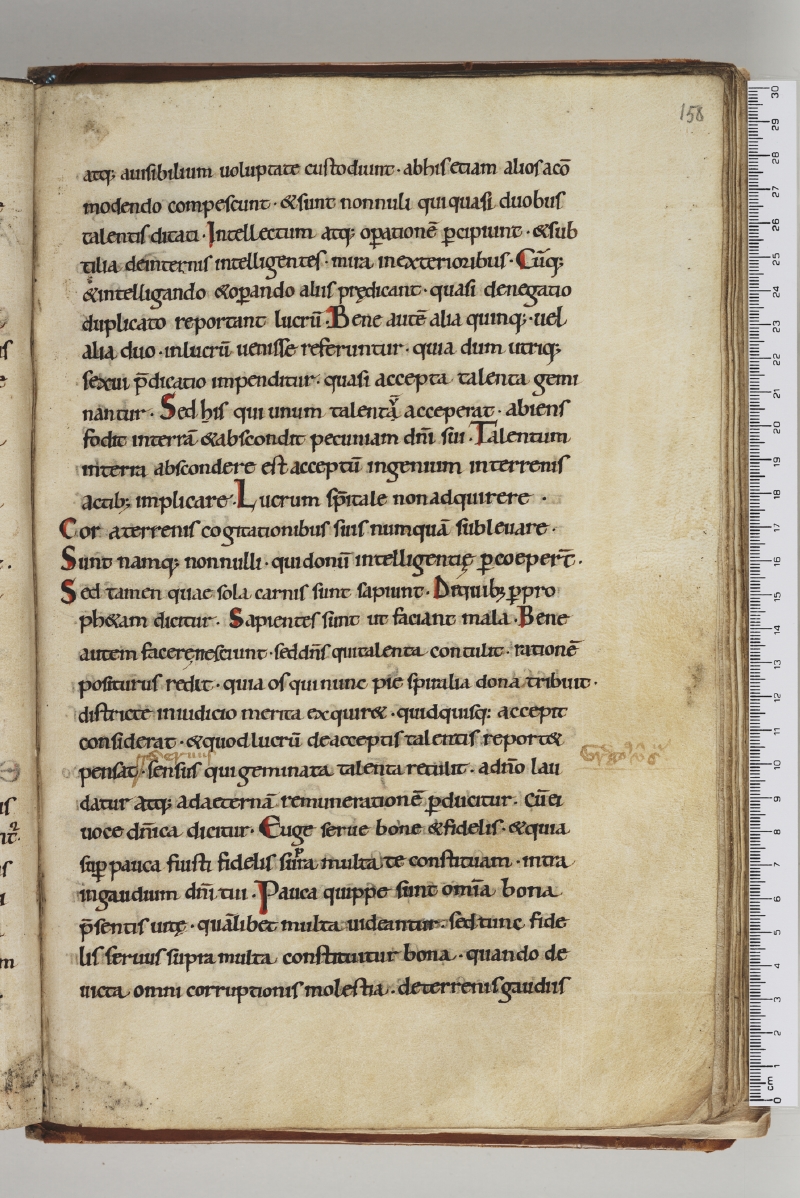 158
atq; auisibilium uoluptate custodiunt · abhis etiam alios acō
modendo compescunt · &sunt nonnuli qui quasi duobus
talentis ditati · Intellectum atq; oꝑationē ꝑcipiunt · &sub
tilia deinternis intelligentes · mira inexterioribus · Cūq;
&intelligando &oꝑando aliis prędicant · quasi denegatio
duplicato reportant lucrū · Bene autē alia quinq; · uel
alia duo · inlucrū uenisse referuntur · quia dum utriq;
sexui p̄dicatio impenditur · quasi accepta talenta gemi
nantur · Sed his qui unum talentū acceperat · abiens
fodit interrā &abscondit pecuniam dn̄i sui · Talentum
interra abscondere est acceptū ingenium interrenis
actib; implicare · Lucrum sp̄itale nonadquirere ·
Cor aterrenis cogitationibus suis numquā subleuare ·
Sunt namq; nonnulli · qui donū intelligentię ꝑcoeper̄t ·
Sed tamen quae sola carnis sunt sapiunt · Dequib; ꝑpro
ph&am dicitur · Sapientes sunt ut faciant mala · Bene
autem facere nesciunt · sed dn̄s qui talenta contulit · rationē
positurus redit · quia os qui nunc pie spiralia dona tribuit ·
districte iniudicio merita exquir& · quid quisq; accepit
considerat · &quod lucrū deacceptis talentis report&
pensat · sensus qui geminata talenta retulit · adn̄o lau
datur atq; adaeternā remunerationē ꝑducitur · cū ei
uoce dn̄ica dicitur · Euge serue bone &fidelis · &quia
suꝑ pauca fuisti fidelis supra multa te constituam · intra
ingaudium dn̄i tui · Pauca quippe sunt om̄ia bona
p̄sentis uitę · quālibet multa uideantur · sed tunc fide
lis seruus supra multa constituitur bona · quando de
uicta omni corruptionis molestia · deterrenis gaudiis
30
29
28
27
26
25
24
23
22
21
20
19
18
17
16
15
14
13
12
11
10
9
8
7
6
5
4
3
2
1
cm
0